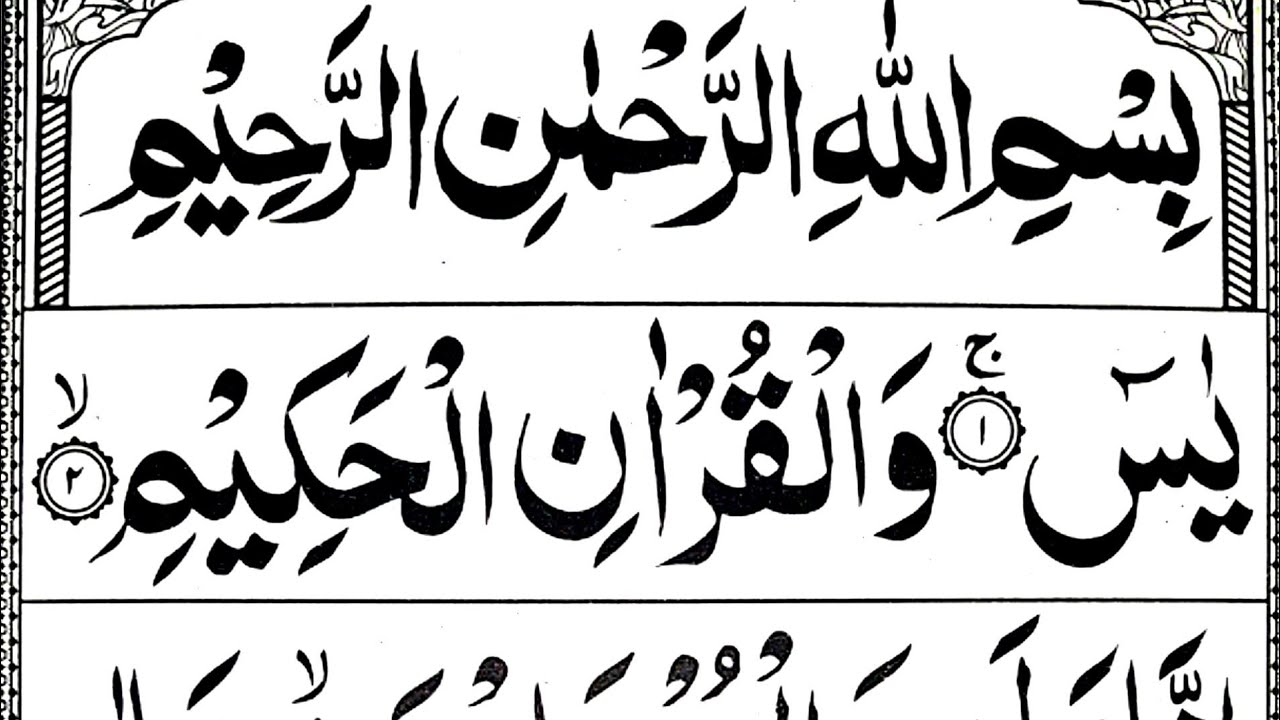 بِسْمِ اللّٰهِ الرَّحْمٰنِ الرَّحِيْمِ
يٰسٓ ۚ ﴿١﴾ وَالْقُرْاٰنِ الْحَكِيْمِ ۙ ﴿٢﴾